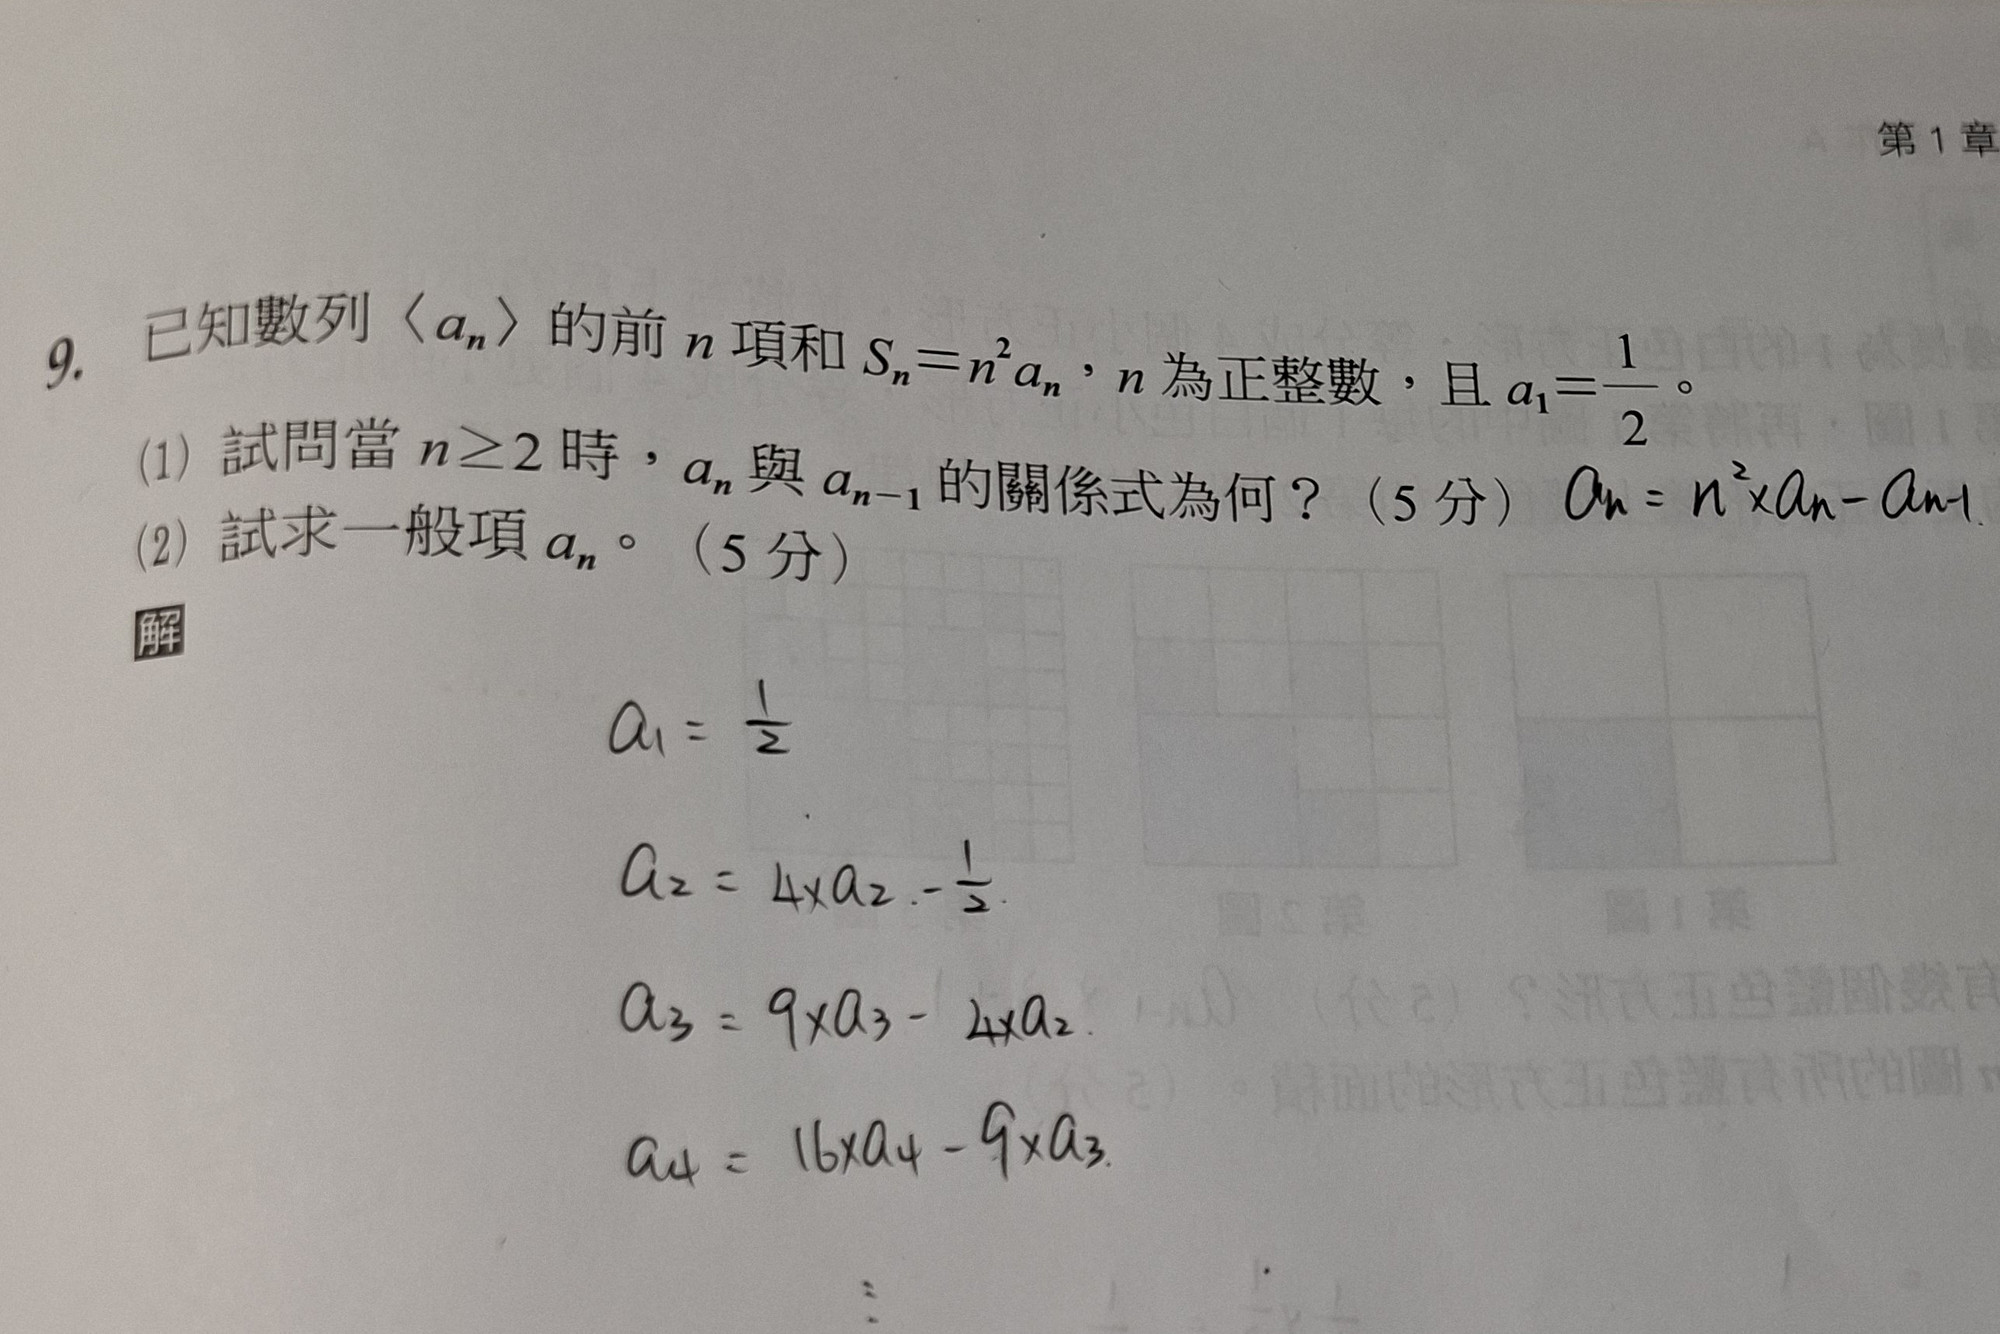 第1章
9. 已知數列〈aₙ〉的前 n 項和 Sₙ=n²aₙ，n 為正整數，且 a₁=1/2。
(1) 試問當 n≥2 時，aₙ 與 aₙ₋₁ 的關係式為何？（5 分） aₙ = n²×aₙ - aₙ₋₁.
(2) 試求一般項 aₙ。（5 分）
解
a₁ = 1/2
a₂ = 4×a₂ - 1/2.
a₃ = 9×a₃ - 4×a₂.
a₄ = 16×a₄ - 9×a₃.
⋮